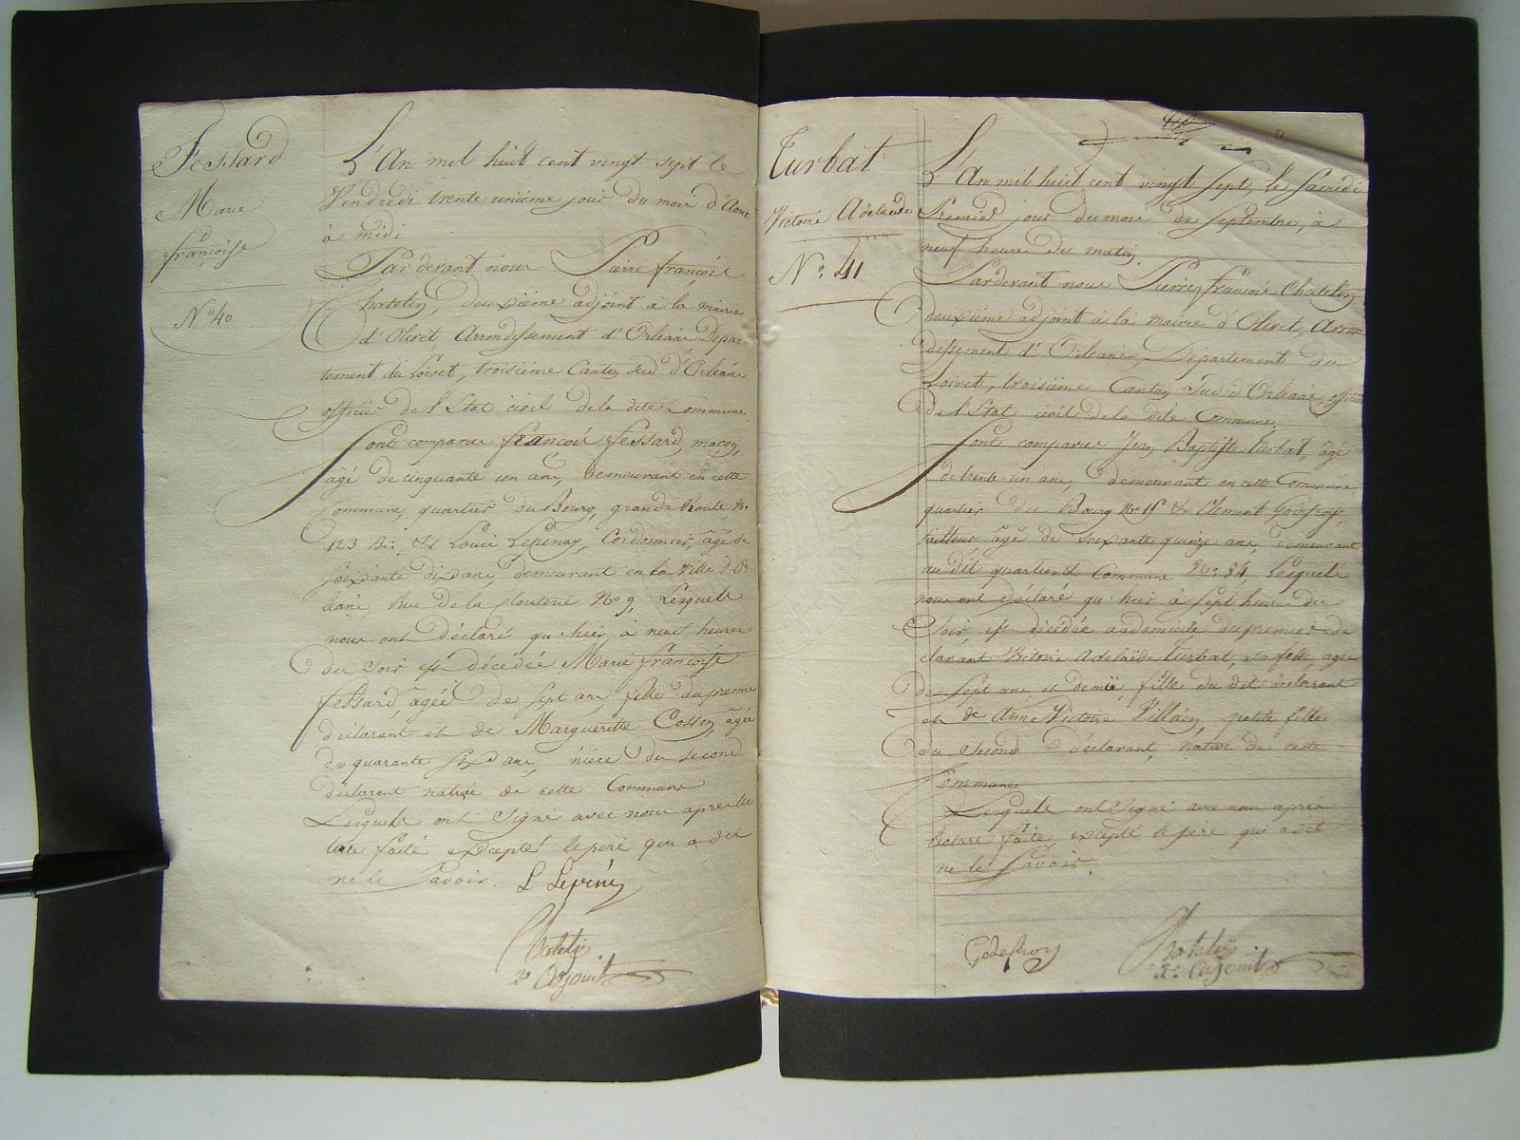 Fessard
Marie
françoise
N° 40
L'An mil huit cent vingt sept le
Vendredi trente unième jour du mois d'Aout
à midi
Pardevant nous Pierre françois
Chatelin, deuxième adjoint à la mairie
d'Olivet Arrondissement d'Orléans Dépar
tement du Loiret, troisième Canton Sud d'Orléans
officier de l'Etat civil de la dite Commune
Sont comparus françois fessard, maçon,
âgé de cinquante un ans, demeurant en cette
Commune, quartier du Bourg, grande Route N°
123 Bis, et Louis Lepinay, Cordonnier, âgé de
soixante dix ans, demeurant en la Ville d'Or
léans, Rue de la N° 9, Lesquels
nous ont déclaré qu'hier, à neuf heures
du soir est décédée Marie françoise
fessard, âgée de sept ans, fille du premier
déclarant et de Marguerite Cosson, âgée
de quarante six ans, nièce du second
déclarant native de cette Commune
Lesquels ont signé avec nous après lec
ture faite excepté le père qui a dit
ne le savoir. L Lepiné
Chatelin
2e Adjoint
Turbat
Victoire Adelaide
N° 41
L'An mil huit cent vingt sept, le samedi
Premier jour du mois de Septembre, à
neuf heures du matin.
Pardevant nous Pierre françois Chatelin
deuxième adjoint à la mairie d'Olivet, Arron
dissement d'Orléans, Département du
Loiret, troisième Canton Sud d'Orléans, officier
de l'Etat civil de la dite Commune.
Sont comparus Jean Baptiste Turbat, âgé
de trente un ans, demeurant en cette Commune
quartier du Bourg N° 15 & Clément Godefroy,
tailleur âgé de soixante quinze ans, demeurant
au dit quartier et Commune N° 34, Lesquels
nous ont déclaré qu'hier à sept heures du
soir, est décédée au domicile du premier dé
clarant Victoire Adelaïde Turbat, sa fille, agée
de sept ans et demie, fille du dit déclarant
et de Anne Victoire Villain, petite fille
du second déclarant, native de cette
Commune
Lesquels ont signé avec nous après
lecture faite, excepté le père qui a dit
ne le savoir.
Godefroy
Chatelin
2e Adjoint